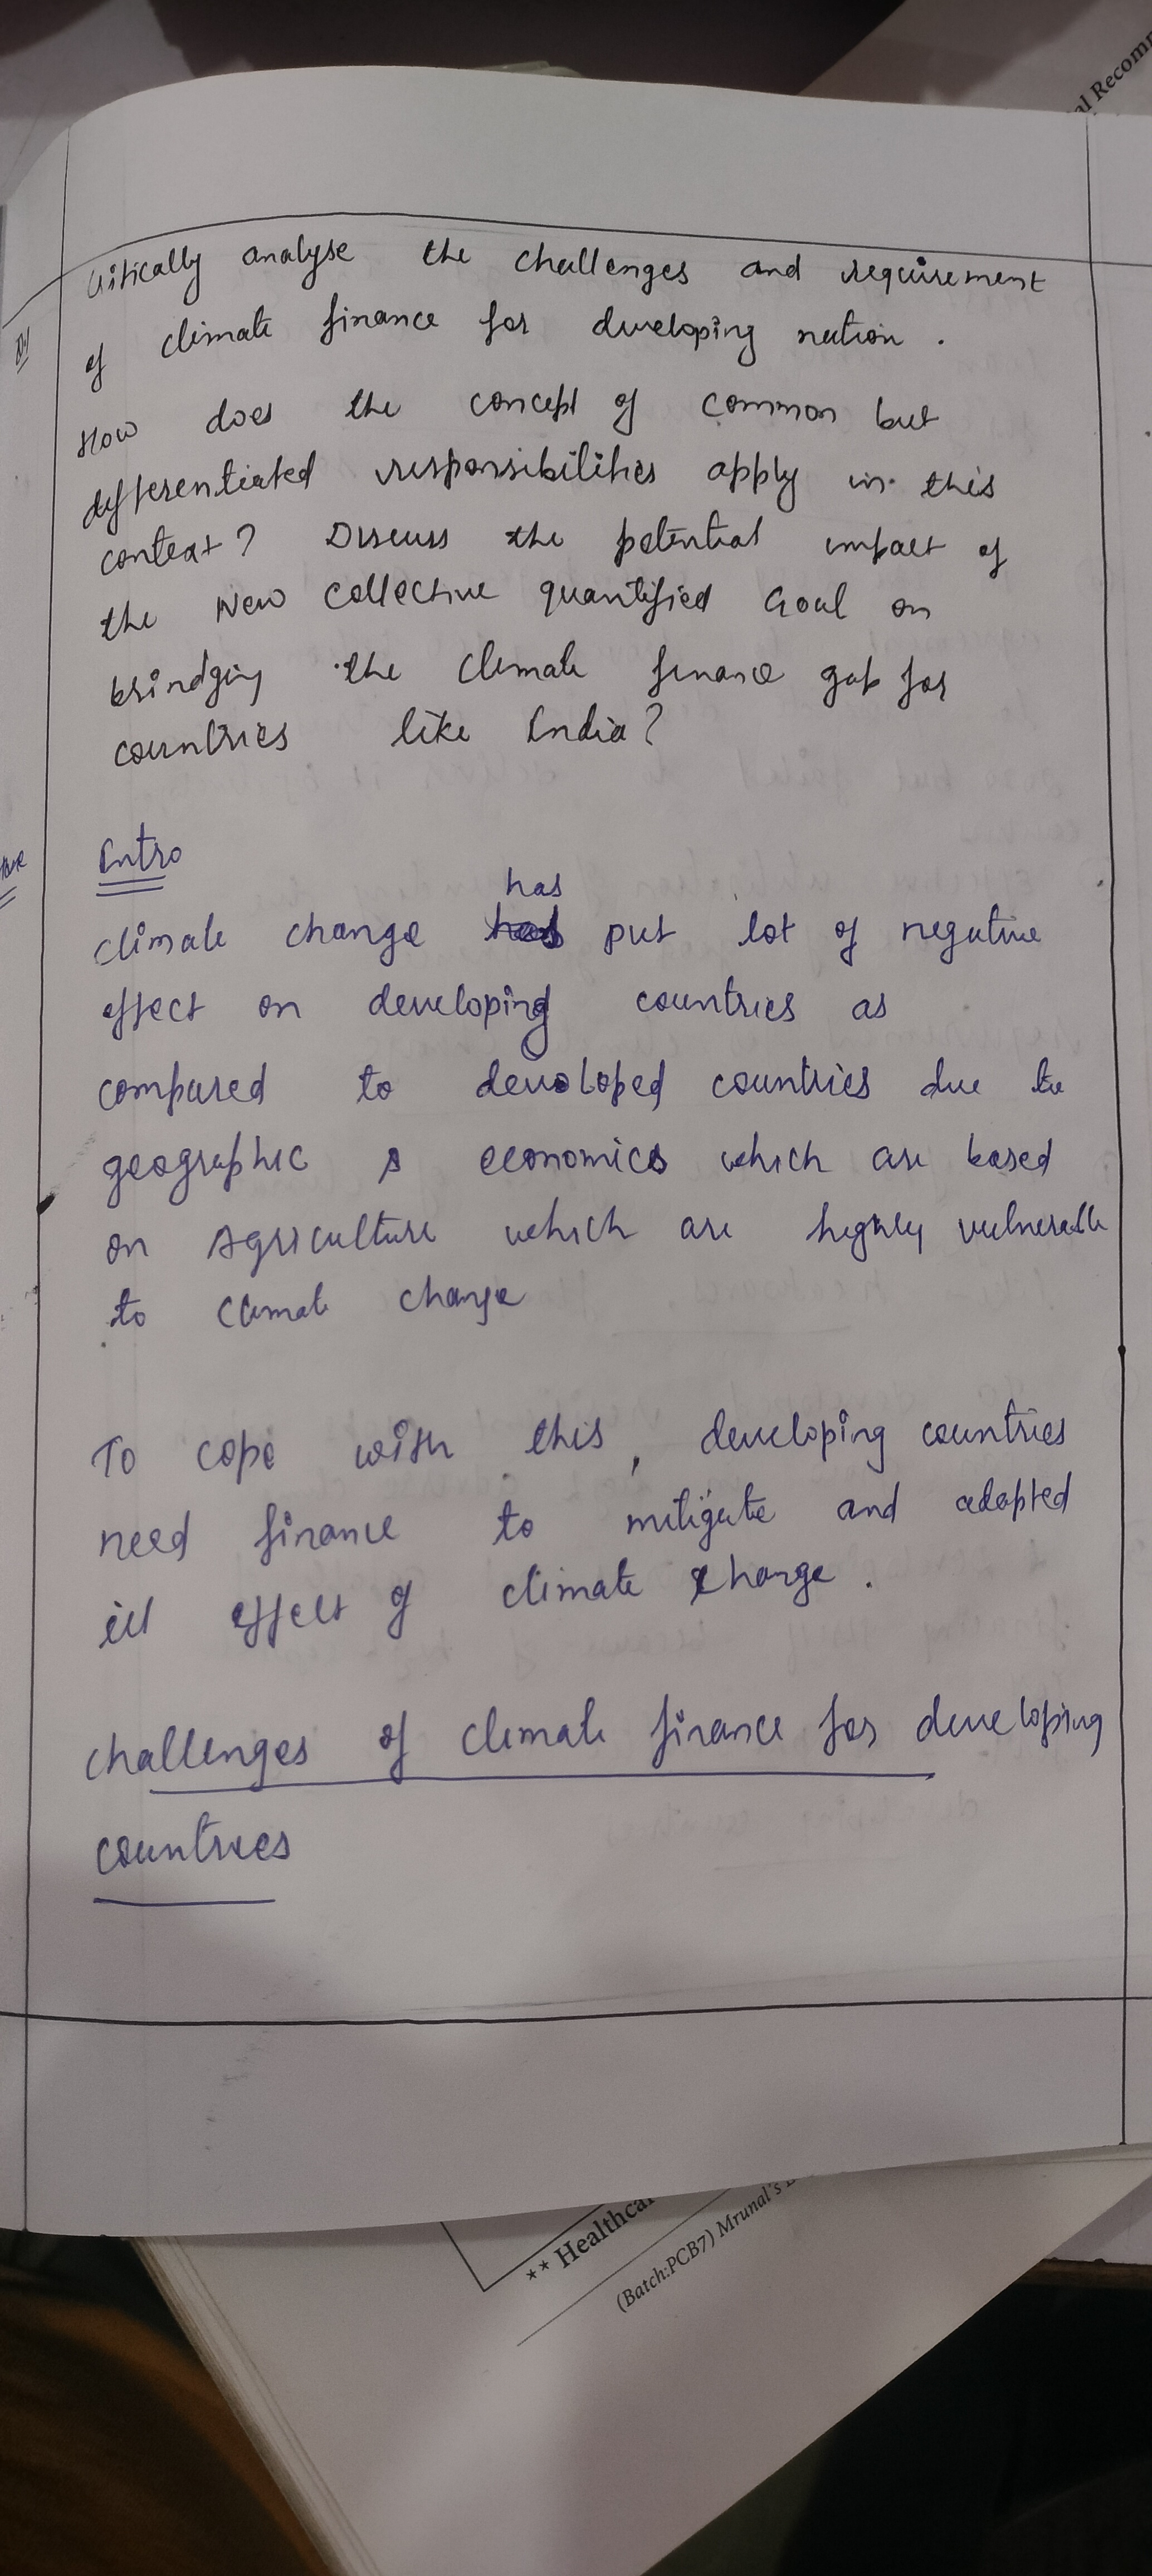 al Recom
Critically analyse the challenges and requirement
of climate finance for developing nation.
How does the concept of common but
differentiated responsibilities apply in this
context? Discuss the potential impact of
the New Collective quantified Goal on
brindging the climate finance gap for
countries like India?
Intro
has
climate change put lot of negative
effect on developing countries as
compared to developed countries due to
geographic & economics which are based
on Agriculture which are highly vulnerable
to climate change
To cope with this, developing countries
need finance to mitigate and adapted
ill effect of climate change.
challenges of climate finance for developing
countries
** Healthcar
(Batch:PCB7) Mrunal's